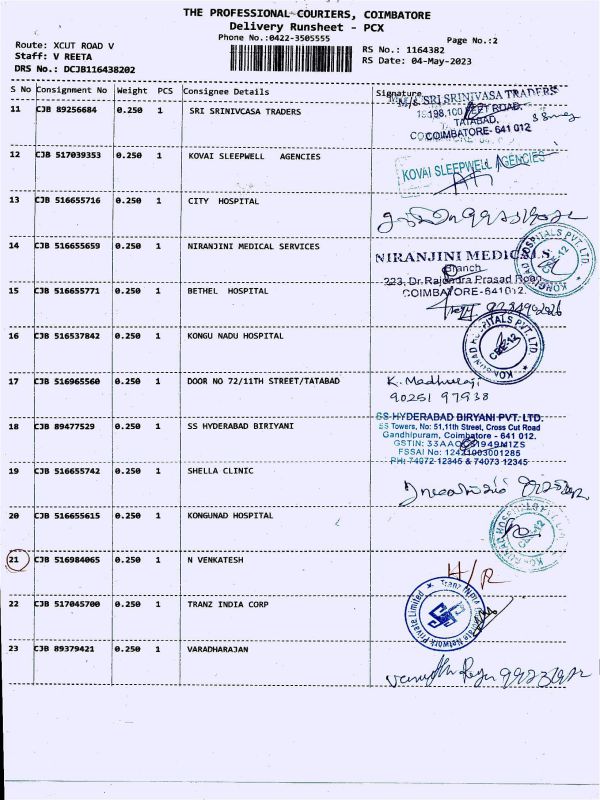 THE PROFESSIONAL COURIERS, COIMBATORE
Delivery Runsheet - PCX
Phone No.:0422-3505555
Page No.:2
Route: XCUT ROAD V
Staff: V REETA
DRS No.: DCJB116438202
RS No.: 1164382
RS Date: 04-May-2023
S No Consignment No Weight PCS Consignee Details Signature
M/s. SRI SRINIVASA TRADERS
11 CJB 89256684 0.250 1 SRI SRINIVCASA TRADERS
TATABAD.
COIMBATORE- 641 012
12 CJB 517039353 0.250 1 KOVAI SLEEPWELL AGENCIES
KOVAI SLEEPWELL AGENCIES
13 CJB 516655716 0.250 1 CITY HOSPITAL
14 CJB 516655659 0.250 1 NIRANJINI MEDICAL SERVICES
NIRANJINI MEDICALS
Branch
223, Dr. Rajendra Prasad Road
COIMBATORE- 641012.
15 CJB 516655771 0.250 1 BETHEL HOSPITAL
16 CJB 516537842 0.250 1 KONGU NADU HOSPITAL
HOSPITALS PVT. LTD.
CBE-12
17 CJB 516965560 0.250 1 DOOR NO 72/11TH STREET/TATABAD
90251 97938
18 CJB 89477529 0.250 1 SS HYDERABAD BIRIYANI
SS HYDERABAD BIRYANI PVT. LTD.
SS Towers, No: 51,11th Street, Cross Cut Road
Gandhipuram, Coimbatore - 641 012.
PH: 74072 12345 & 74073 12345
19 CJB 516655742 0.250 1 SHELLA CLINIC
20 CJB 516655615 0.250 1 KONGUNAD HOSPITAL
21 CJB 516984065 0.250 1 N VENKATESH
H/R
22 CJB 517045700 0.250 1 TRANZ INDIA CORP
23 CJB 89379421 0.250 1 VARADHARAJAN